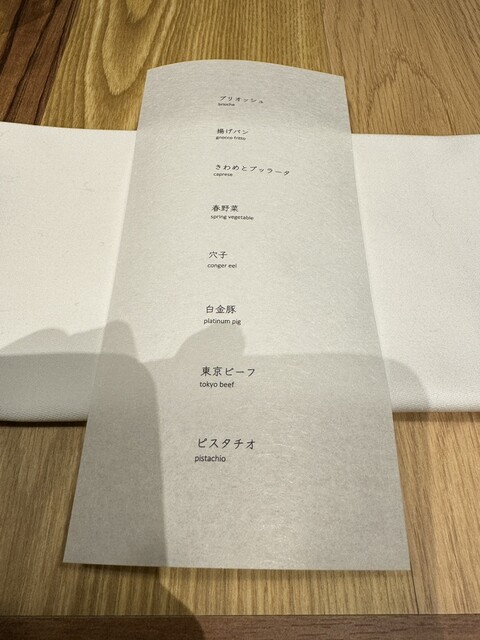 ブリオッシュ
brioche
揚げパン
gnocco fritto
さわめとブッラータ
caprese
春野菜
spring vegetable
穴子
conger eel
白金豚
platinum pig
東京ビーフ
tokyo beef
ピスタチオ
pistachio